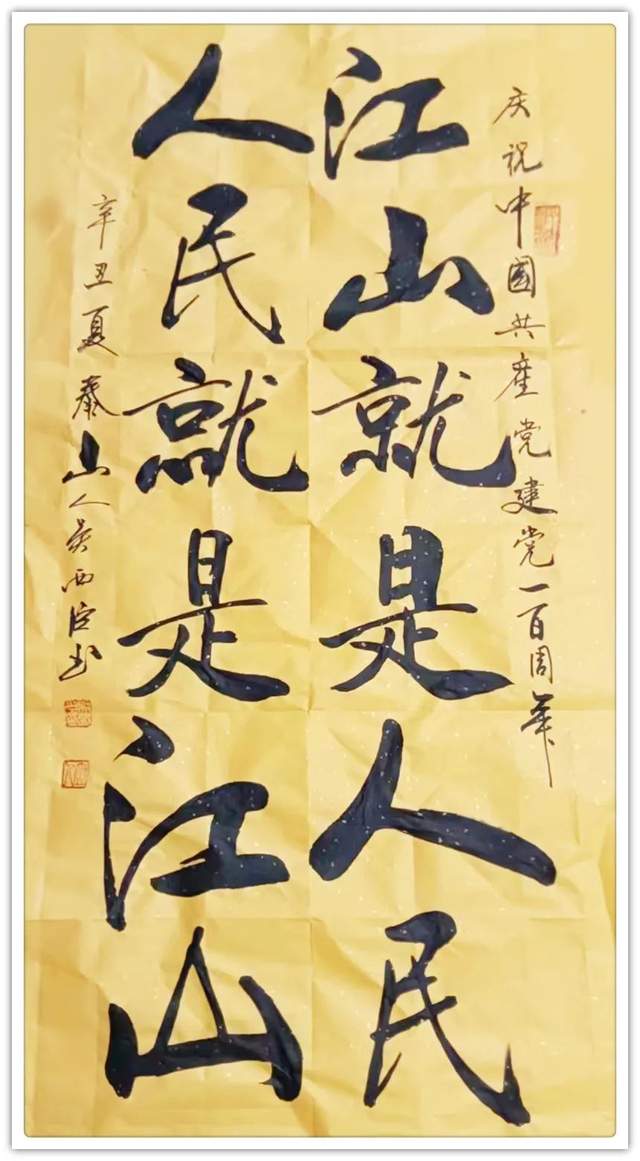 庆祝中國共産党建党一百周年
江山就是人民
人民就是江山
辛丑夏泰山人吴西臣书